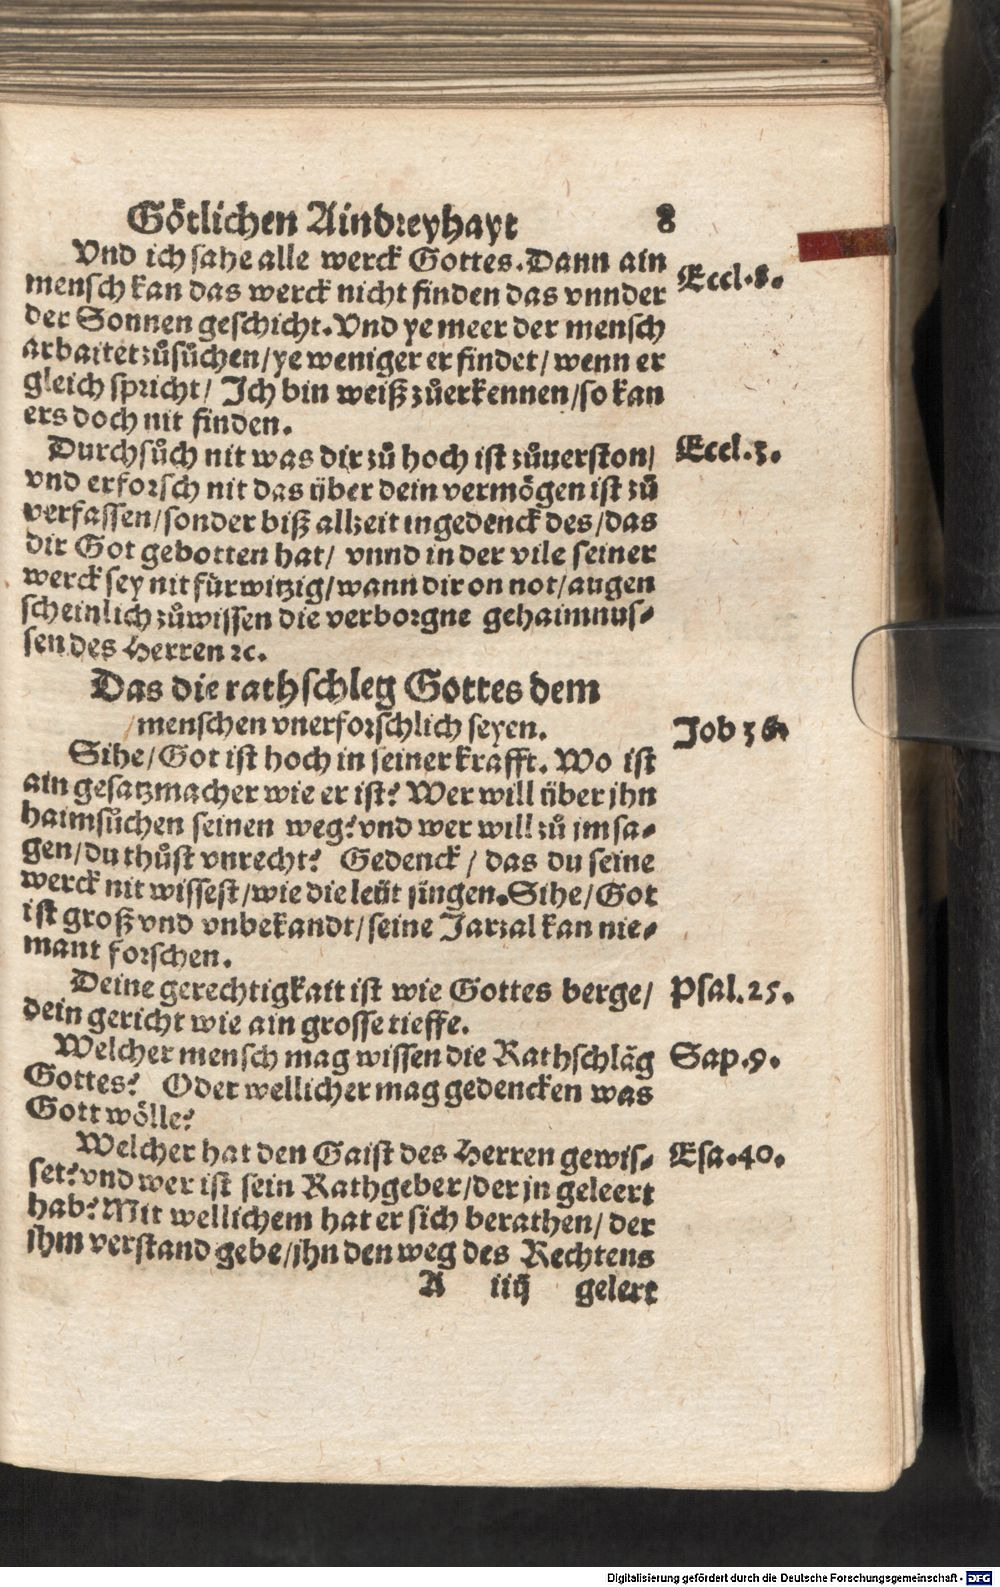 Götlichen Aindreyhayt 8
Vnd ich sahe alle werck Gottes. Dann ain
mensch kan das werck nicht finden das vnnder
der Sonnen geschicht. Vnd ye meer der mensch
arbaitet zůsůchen/ ye weniger er findet/ wenn er
gleich spricht/ Ich bin weiß zůerkennen/ so kan
ers doch nit finden.
Eccl.8.
Durchsůch nit was dir zů hoch ist zůuerston/
vnd erforsch nit das über dein vermögen ist zů
verfassen/ sonder biß allzeit ingedenck des/ das
dir Got gebotten hat/ vnnd in der vile seiner
werck sey nit fürwitzig/ wann dir on not/ augen
scheinlich zůwissen die verborgne gehaimnus-
sen des Herren ꝛc.
Eccl.3.
Das die rathschleg Gottes dem
menschen vnerforschlich seyen.
Sihe/ Got ist hoch in seiner krafft. Wo ist
ain gesatzmacher wie er ist? Wer will über jhn
haimsůchen seinen weg? vnd wer will zů im sa-
gen/ du thůst vnrecht? Gedenck/ das du seine
werck nit wissest/ wie die leüt singen. Sihe/ Got
ist groß vnd vnbekandt/ seine Jarzal kan nie-
mant forschen.
Job 36
Deine gerechtigkait ist wie Gottes berge/
dein gericht wie ain grosse tieffe.
Psal.25.
Welcher mensch mag wissen die Rathschläg
Gottes? Oder wellicher mag gedencken was
Gott wölle?
Sap.9.
Welcher hat den Gaist des Herren gewis-
set? vnd wer ist sein Rathgeber/ der jn geleert
hab? Mit wellichem hat er sich berathen/ der
jhm verstand gebe/ jhn den weg des Rechtens
Esa.40.
A iiij gelert
Digitalisierung gefördert durch die Deutsche Forschungsgemeinschaft - DFG